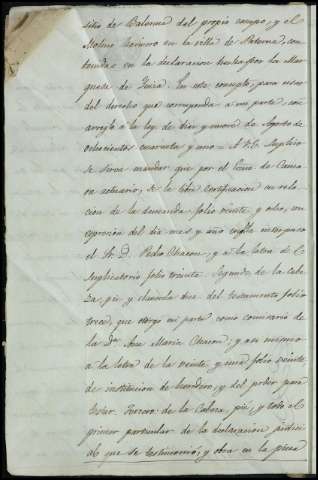 sitio de Balonna del propio campo, y el
Molino harinero en la villa de Paterna, con-
tenidas en la declaracion hecha por la Mar-
quesa de Yniza. En este concepto, para usar
del derecho que corresponda a mi parte, con
arreglo a la ley de diez y nueve de Agosto de
ochocientos cuarenta y uno = A V.S. Suplico
se sirva mandar que por el Escno de Cama-
ra actuario, se me libre certificacion en rela-
cion de la demanda folio veinte y ocho, con
espresion del dia mes y año en que la interpuso
el Sr. D. Pedro Chacon, y a la letra de el
Suplicatorio folio treinta. Segundo: de la cabe-
za, pie y clausula dose del testamento folio
trece, que otorgó mi parte como comisario de
la Da. Ana Maria Chacon, y asi mismo
a la letra de la veinte y una folio veinte
de institucion de heredero, y del poder para
testar. Tercero: de la Cabeza, pie, y todo el
primer particular de la declaracion judici-
al que se testimonió, y obra en la pieza